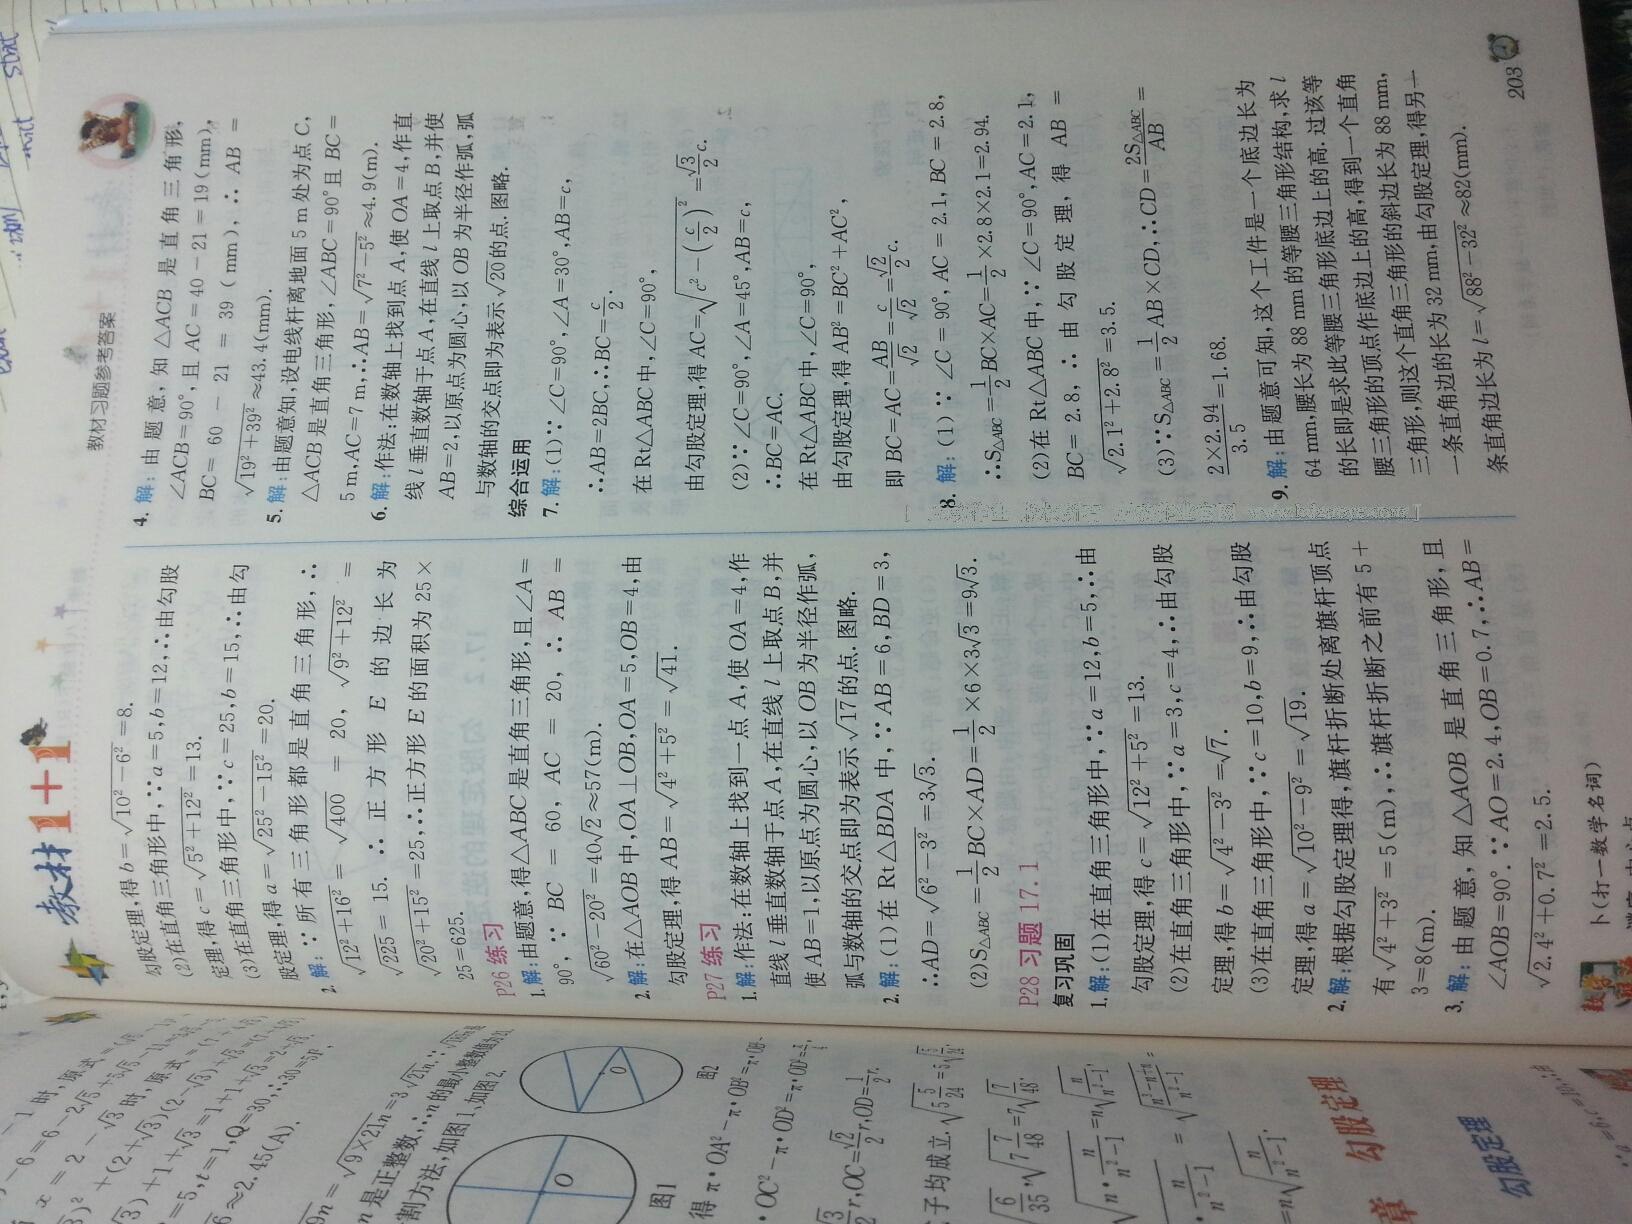 教材1+1
教材习题参考答案
勾股定理,得b=√(10²-6²)=8.
(2)在直角三角形中,∵a=5,b=12,∴由勾股
定理,得c=√(5²+12²)=13.
(3)在直角三角形中,∵c=25,b=15,∴由勾
股定理,得a=√(25²-15²)=20.
2. 解:∵所有三角形都是直角三角形,∴
√(12²+16²)=√400=20,√(9²+12²)=
√225=15.∴正方形E的边长为
√(20²+15²)=25,∴正方形E的面积为25×
25=625.
P26 练习
1. 解:由题意,得△ABC是直角三角形,且∠A=
90°,∵BC=60,AC=20,∴AB=
√(60²-20²)=40√2≈57(m).
2. 解:在△AOB中,OA⊥OB,OA=5,OB=4,由
勾股定理,得AB=√(4²+5²)=√41.
P27 练习
1. 解:作法:在数轴上找到一点A,使OA=4,作
直线l垂直数轴于点A,在直线l上取点B,并
使AB=1,以原点为圆心,以OB为半径作弧,
弧与数轴的交点即为表示√17的点.图略.
2. 解:(1)在Rt△BDA中,∵AB=6,BD=3,
∴AD=√(6²-3²)=3√3.
(2)S△ABC=1/2BC×AD=1/2×6×3√3=9√3.
P28 习题17.1
复习巩固
1. 解:(1)在直角三角形中,∵a=12,b=5,∴由
勾股定理,得c=√(12²+5²)=13.
(2)在直角三角形中,∵a=3,c=4,∴由勾股
定理,得b=√(4²-3²)=√7.
(3)在直角三角形中,∵c=10,b=9,∴由勾股
定理,得a=√(10²-9²)=√19.
2. 解:根据勾股定理得,旗杆折断处离旗杆顶点
有√(4²+3²)=5(m),∴旗杆折断之前有5+
3=8(m).
3. 解:由题意,知△AOB是直角三角形,且
∠AOB=90°.∵AO=2.4,OB=0.7,∴AB=
√(2.4²+0.7²)=2.5.
卜(打一数学名词)
4. 解:由题意,知△ACB是直角三角形,
∠ACB=90°,且AC=40-21=19(mm),
BC=60-21=39(mm),∴AB=
√(19²+39²)≈43.4(mm).
5. 解:由题意知,设电线杆离地面5 m处为点C,
△ACB是直角三角形,∠ABC=90°且BC=
5 m,AC=7 m,∴AB=√(7²-5²)≈4.9(m).
6. 解:作法:在数轴上找到点A,使OA=4,作直
线l垂直数轴于点A,在直线l上取点B,并使
AB=2,以原点为圆心,以OB为半径作弧,弧
与数轴的交点即为表示√20的点.图略.
综合运用
7. 解:(1)∵∠C=90°,∠A=30°,AB=c,
∴AB=2BC,∴BC=c/2.
在Rt△ABC中,∠C=90°,
由勾股定理,得AC=√(c²-(c/2)²)=√3/2c.
(2)∵∠C=90°,∠A=45°,AB=c,
∴BC=AC.
在Rt△ABC中,∠C=90°,
由勾股定理,得AB²=BC²+AC²,
即BC=AC=AB/√2=c/√2=√2/2c.
8. 解:(1)∵∠C=90°,AC=2.1,BC=2.8,
∴S△ABC=1/2BC×AC=1/2×2.8×2.1=2.94.
(2)在Rt△ABC中,∵∠C=90°,AC=2.1,
BC=2.8,∴由勾股定理,得AB=
√(2.1²+2.8²)=3.5.
(3)∵S△ABC=1/2AB×CD,∴CD=2S△ABC/AB=
2×2.94/3.5=1.68.
9. 解:由题意可知,这个工件是一个底边长为
64 mm,腰长为88 mm的等腰三角形结构,求l
的长即是求此等腰三角形底边上的高.过该等
腰三角形的顶点作底边上的高,得到一个直角
三角形,则这个直角三角形的斜边长为88 mm,
一条直角边的长为32 mm,由勾股定理,得另一
条直角边长为l=√(88²-32²)≈82(mm).
203
图1
图2
勾股定理
勾股定理